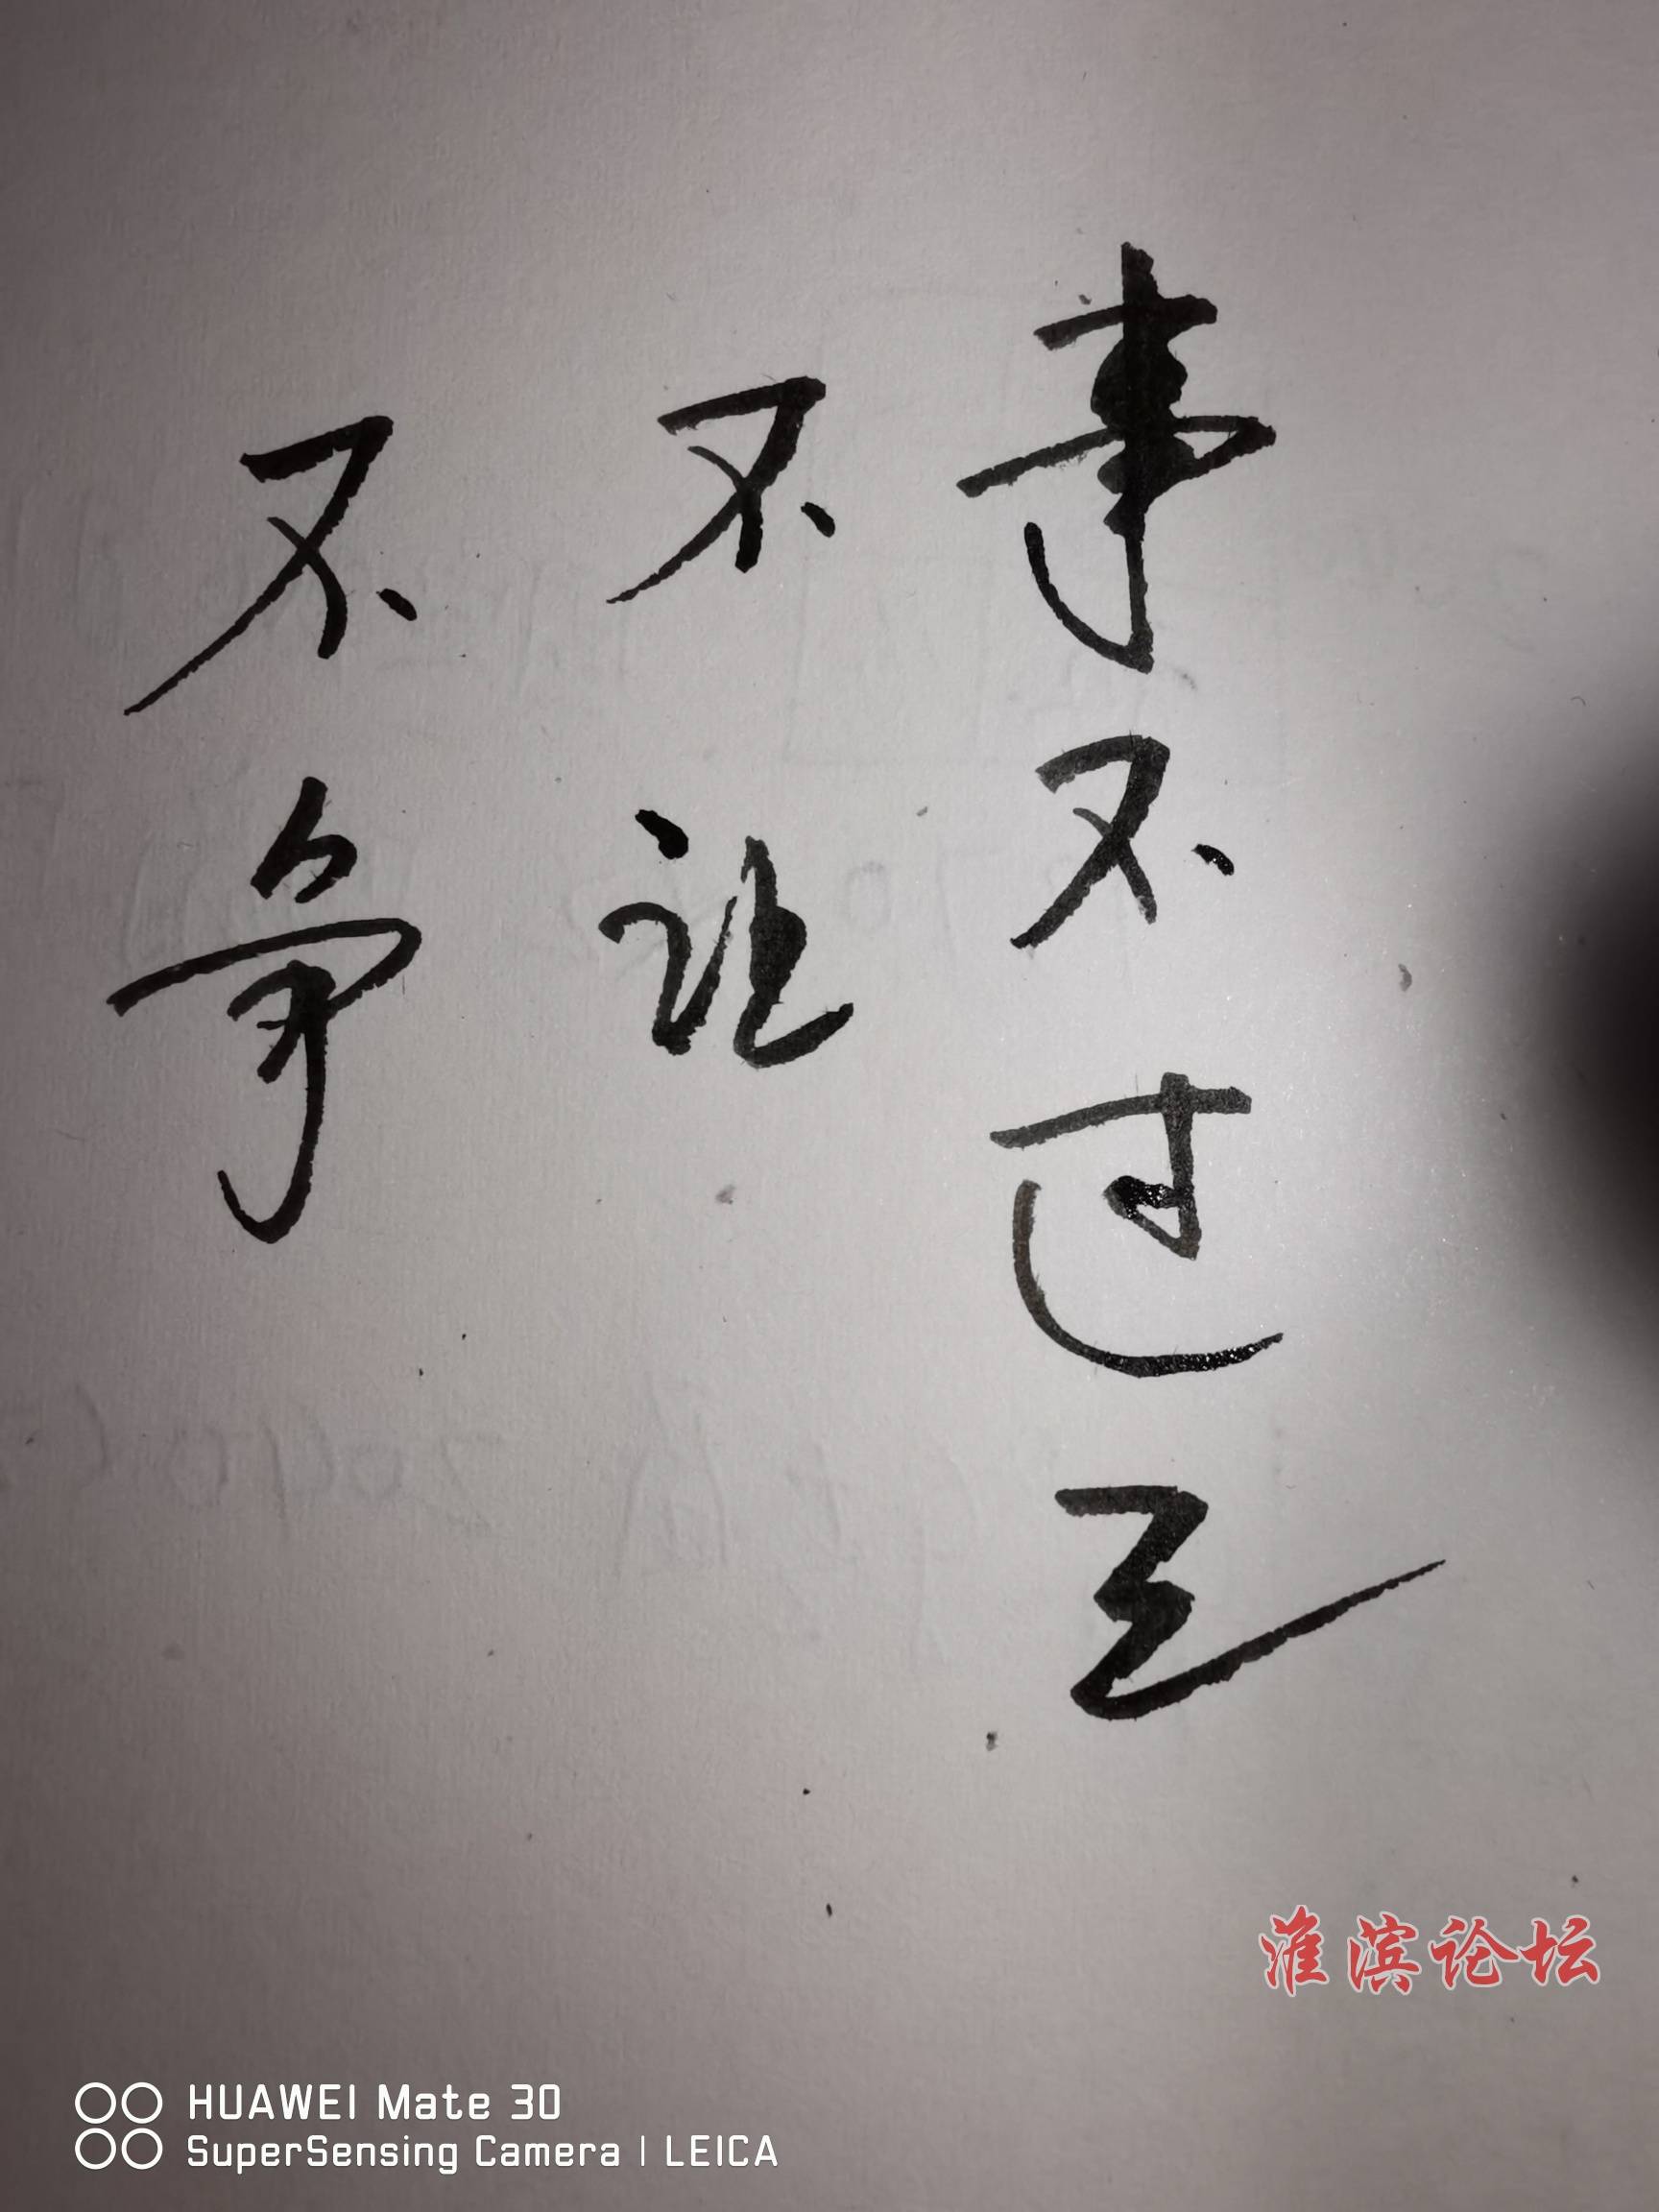 事不过三
不让
不争
淮滨论坛
HUAWEI Mate 30
SuperSensing Camera | LEICA